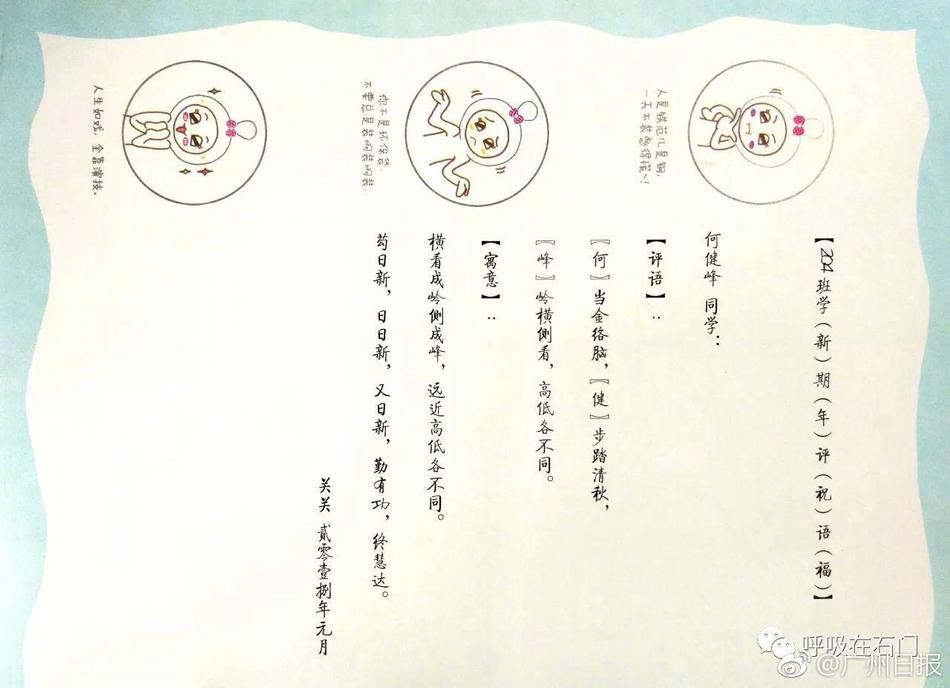 人是铁范儿是钢,
一天不装憋得慌~!
你不是环保袋,
不要总是装啊装啊装.
人生如戏，全靠演技。
【204班学（新）期（年）评（祝）语（福）】
何健峰 同学：
【评语】：
〖何〗当金络脑，〖健〗步踏清秋，
〖峰〗岭横侧看，高低各不同。
【寓意】：
横看成岭侧成峰，远近高低各不同。
苟日新，日日新，又日新，勤有功，终慧达。
关关 貳零壹捌年元月
呼吸在石门
@广州日报